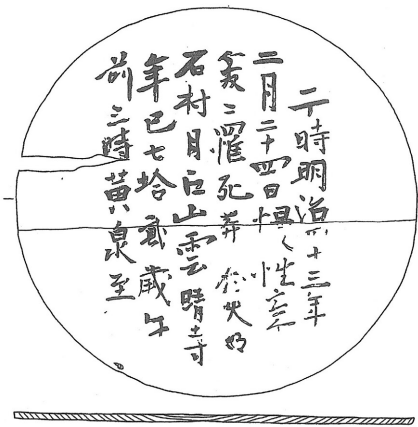 于時明治十三年
二月二十四日慢性
炎ニ罹死葬於
石村月山雲晴寺
年已七拾貳歳午
前三時黄泉至